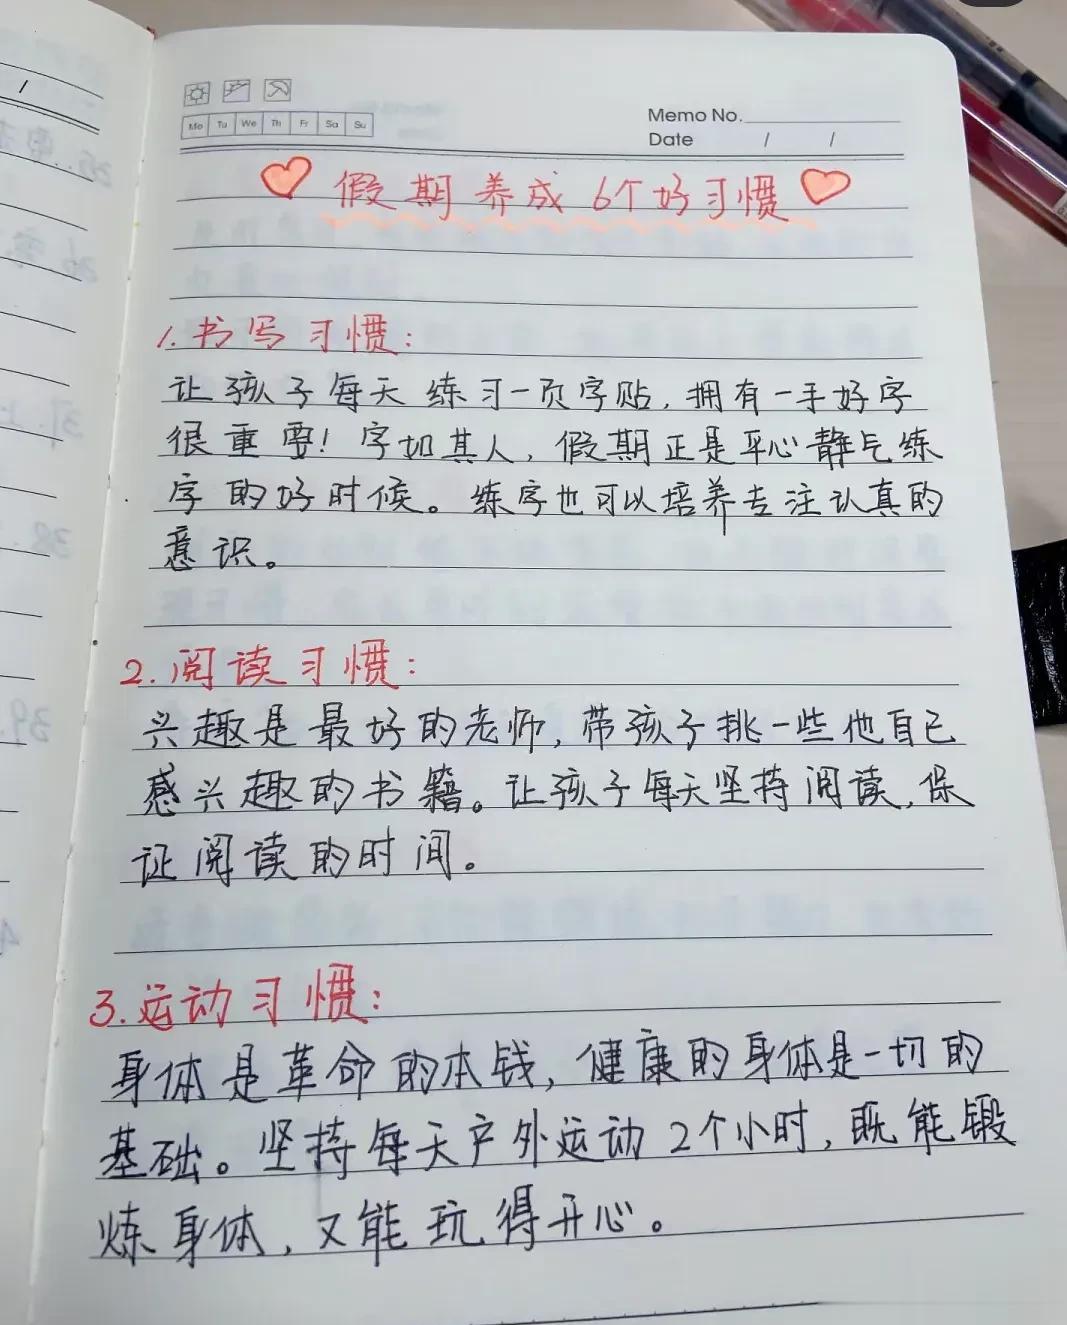 Mo Tu We Th Fr Sa Su
Memo No.
Date / /
假期养成6个好习惯
1.书写习惯：
让孩子每天练习一页字贴，拥有一手好字
很重要！字如其人，假期正是平心静气练
字的好时候。练字也可以培养专注认真的
意识。
2.阅读习惯：
兴趣是最好的老师，带孩子挑一些他自己
感兴趣的书籍。让孩子每天坚持阅读，保
证阅读的时间。
3.运动习惯：
身体是革命的本钱，健康的身体是一切的
基础。坚持每天户外运动2个小时，既能锻
炼身体，又能玩得开心。